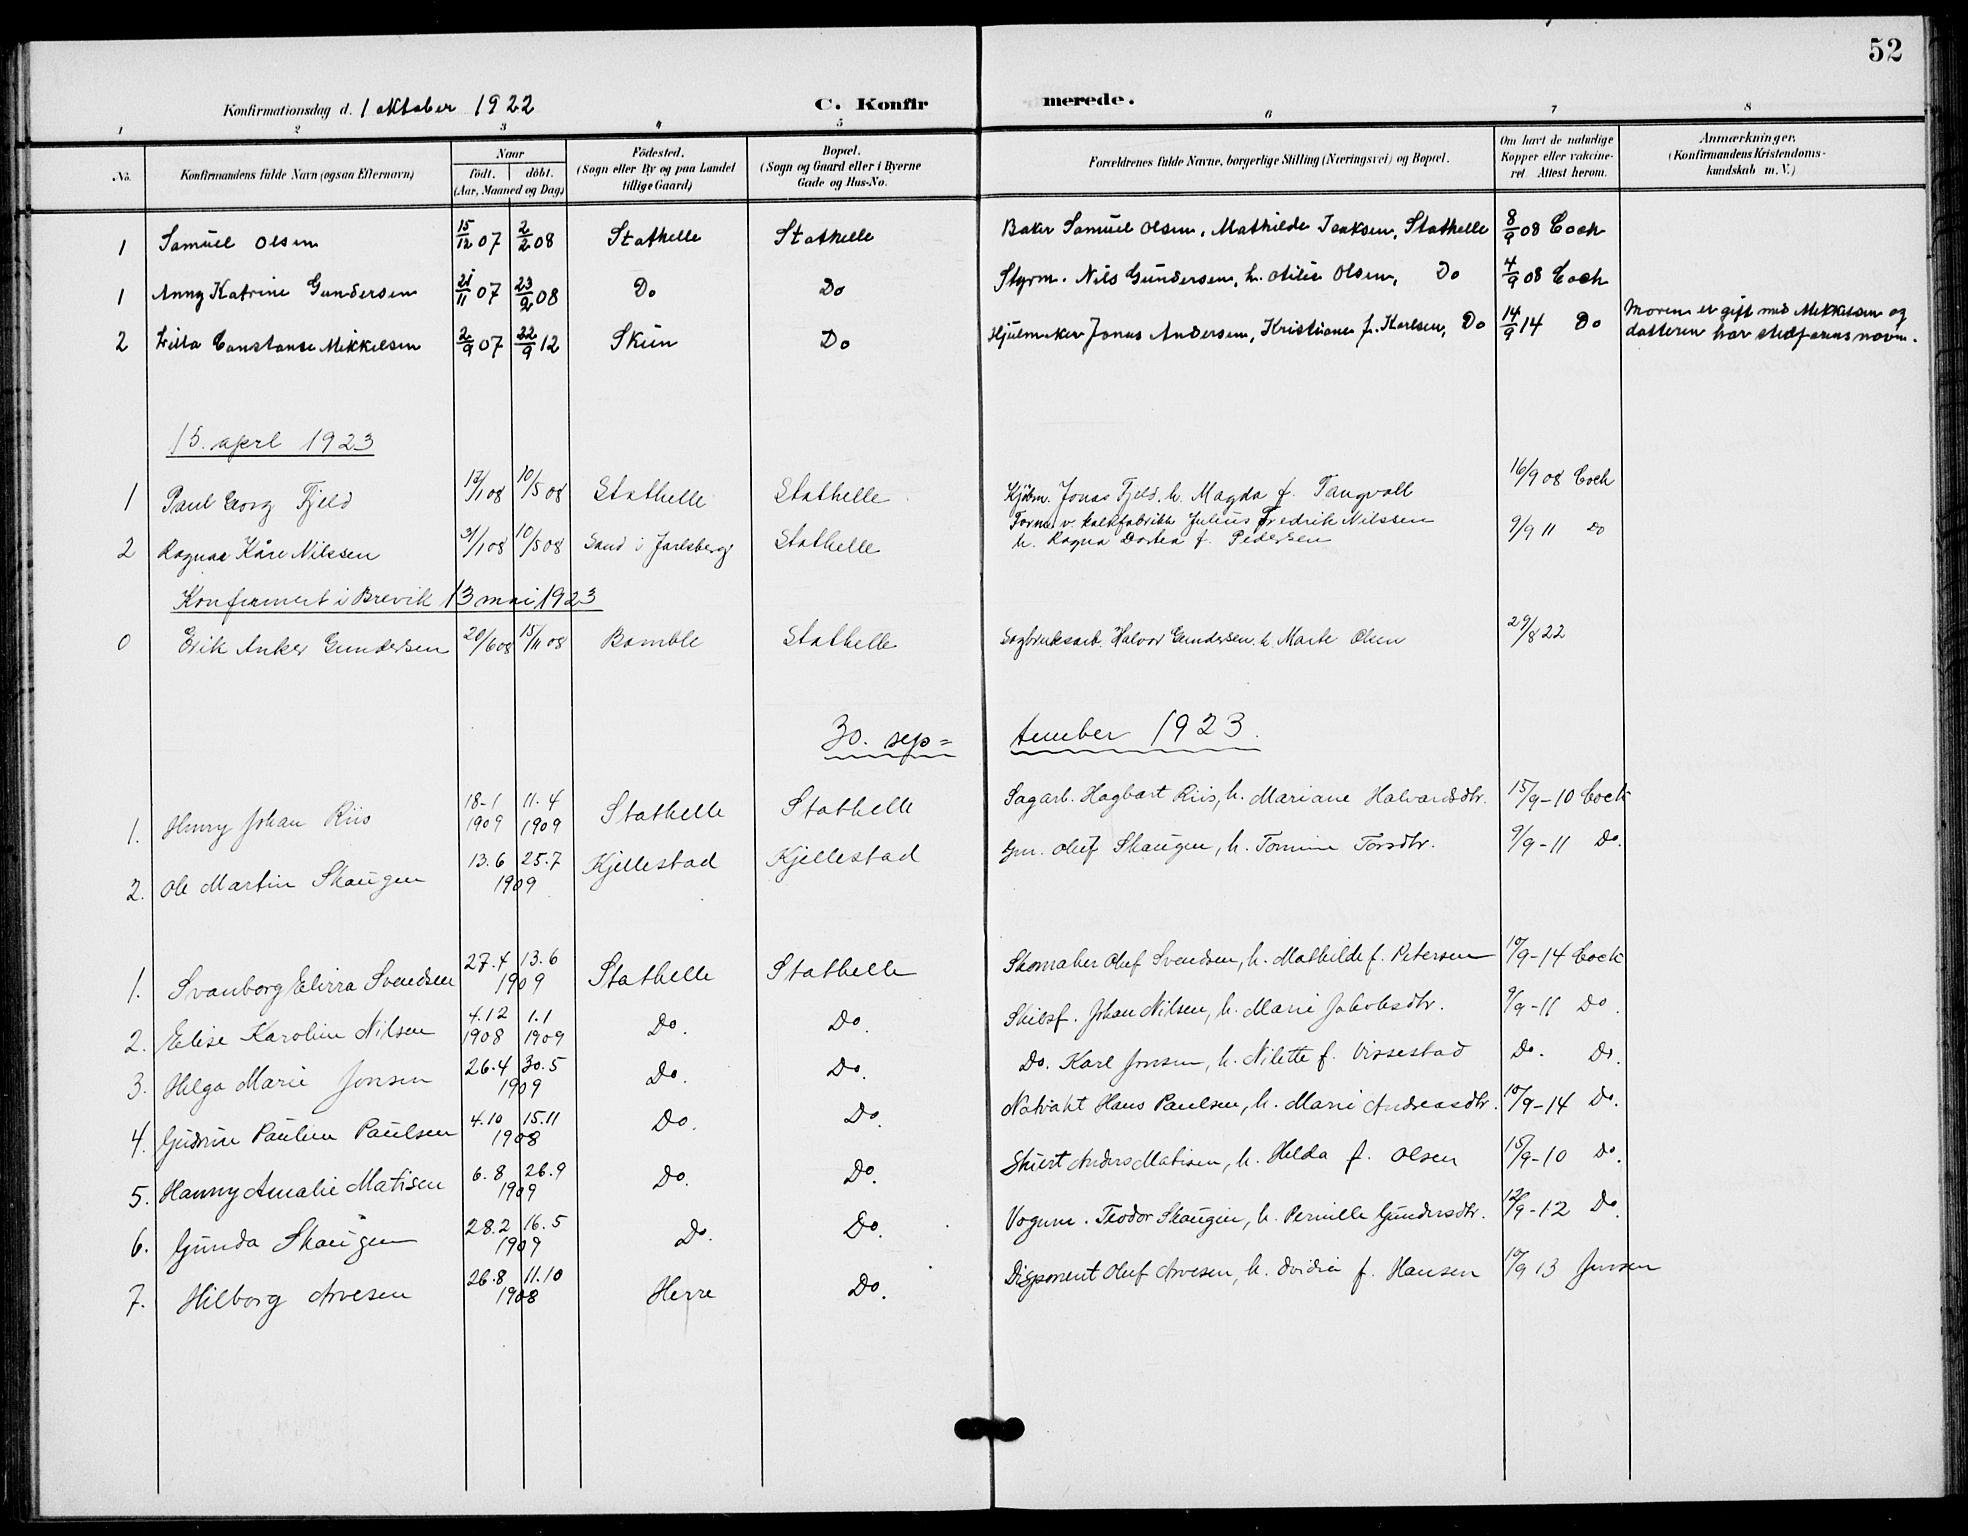 52
Konfirmationsdag d. 1 oktober 1922 C. Konfirmerede.
1 2 3 4 5 6 7 8
No. Konfirmandens fulde Navn (ogsaa Efternavn) Naar født. døbt. (Aar, Maaned og Dag) Födested. (Sogn eller By og paa Landet tillige Gaard) Bopæl. (Sogn og Gaard eller i Byerne Gade og Hus-No. Forældrenes fulde Navne, borgerlige Stilling (Næringsvei) og Bopæl. Om havt de naturlige Kopper eller vakcineret. Attest herom. Anmærkninger. (Konfirmandens Kristendomskundskab m. V.)
1 Samuel Olsen 15/12 07 2/2 08 Stathelle Stathelle Baker Samuel Olsen, Mathilde Isaksen, Stathelle 8/9 08 Coch
1 Anny Katrine Gundersen 21/11 07 23/2 08 Do Do Styrm. Nils Gundersen, h. Olsen, Do 4/9 08 Coch
2 Constanse Mikkelsen 2/9 07 22/9 12 Skien Do Hjulmaker Jonas Andersen, Kristiane f. Karlsen, Do 14/9 14 Do Moren er gift med Mikkelsen og
datteren har stedfarens navn.
15. april 1923
1 Paul Georg Fjeld 17/1 08 10/5 08 Stathelle Stathelle Kjøbm. Jonas Fjeld, h. Magda f. Tangvall 16/9 08 Coch
2 Ragnar Kåre Nilssen 31/1 08 10/5 08 Sand i Jarlsberg Stathelle Form. v. kalkfabrikk Julius Fredrik Nilssen 9/9 11 Do
h. Ragna Dortea f. Pedersen
Konfirmert i Brevik 13 mai 1923
0 Erik Anker Gundersen 20/6 08 15/11 08 Bamble Stathelle Sagbruksarb. Halvor Gundersen h. Olsen 29/8 22
30. september 1923.
1. Henry Johan Riis 18-1 1909 11.4 1909 Stathelle Stathelle Sagarb. Hagbart Riis, h. Mariane Halvordsdtr. 15/9-10 Coch
2. Ole Martin Skaugen 13.6 25.7 1909 Kjellestad Kjellestad Gm. Oluf Skaugen, h. Tomine Torsdtr. 9/9-11 Do.
1. Svanborg Svendsen 27.4 13.6 1909 Stathelle Stathelle Skomaker Oluf Svendsen, h. Mathilde f. Petersen 10/9-14 Coch
2. Elise Karoline Nilsen 4.12 1908 1.1 1909 Do. Do. Skibsf. Johan Nilsen, h. Marie Jakobsdtr. 9/9-11 Do.
3. Helga Marie Jonsen 26.4 30.5 1909 Do. Do. Do. Karl Jonsen, h. Nilette f. Vissestad Do. Do.
4. Gudrun Pauline Paulsen 4.10 15.11 1908 Do. Do. Natvakt Hans Paulsen, h. Marie Andreasdtr. 10/9-14 Do.
5. Hanny Amalie Matisen 6.8 26.9 1909 Do. Do. Anders Matisen, h. Helda f. Olsen 15/9-10 Do.
6. Gunda Skaugen 28.2 16.5 1909 Do. Do. Vognm. Teodor Skaugen, h. Pernille Gundersdtr. 12/9-12 Do.
7. Hilborg Arvesen 26.8 11.10 1908 Herre Do. Disponent Oluf Arvesen, h. f. Hansen 10/9 13 Jensen